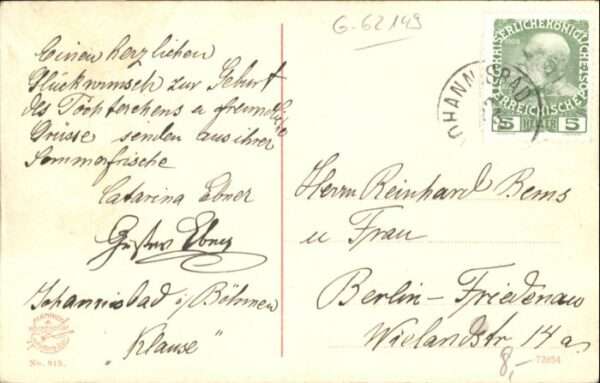 G-62149
Einen herzlichen
Glückwunsch zur Geburt
des Töchterchens u freundliche
Grüsse senden aus ihrer
Sommerfrische
Catarina Ebner
Gustav Ebner
Johannisbad i/Böhmen
"Klause"
No. 815.
KAISERLICHE KÖNIGLICHE
ÖSTERREICHISCHE POST
5 HELLER 5
JOHANNISBAD
Herrn Reinhard Bems
u Frau
Berlin-Friedenau
Wielandstr 14 a
8,-
72654